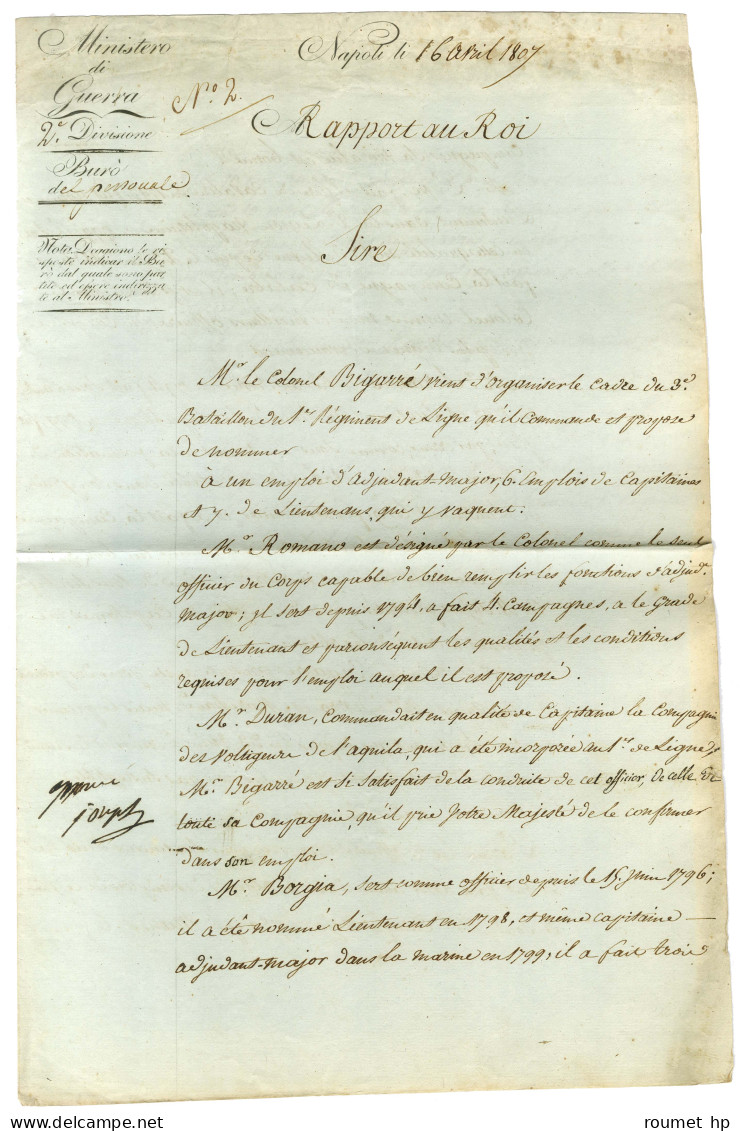 Ministero
di
Guerra
2.e Divisione
Burò
del personale
Nota, Deggiono le ri
sposte indicar il Bu
rò dal quale sono par
tite ed essere indirizza
te al Ministro.
Napoli li 16 avril 1807
N.o 2.
Rapport au Roi
Sire
M.r le Colonel Bigarré vient d'organiser le cadre du 3.e
Bataillon du 1.er Régiment de Ligne qu'il Commande et propose
de nommer
à un emploi d'adjudant-major, 6. Emplois de Capitaines
et 7. de Lieutenans, qui y vaquent:
M.r Romano est désigné par le Colonel comme le seul
officier du Corps capable de bien remplir les fonctions d'adjud.t
major; il sert depuis 1794, a fait 4. Campagnes, a le Grade
de Lieutenant et par conséquent les qualités et les conditions
requises pour l'emploi auquel il est proposé.
M.r Duran, Commandait en qualité de Capitaine la Compagnie
des Voltigeurs de l'aquila, qui a été incorporée au 1.er de Ligne
M.r Bigarré est si satisfait de la conduite de cet officier, de celle de
toute sa Compagnie, qu'il prie Votre Majesté de le confirmer
dans son emploi.
approuvé
joseph
M.r Borgia, sert comme officier depuis le 15. juin 1796;
il a été nommé Lieutenant en 1798, et même capitaine
adjudant-major dans la marine en 1799, il a fait trois
roumet hp